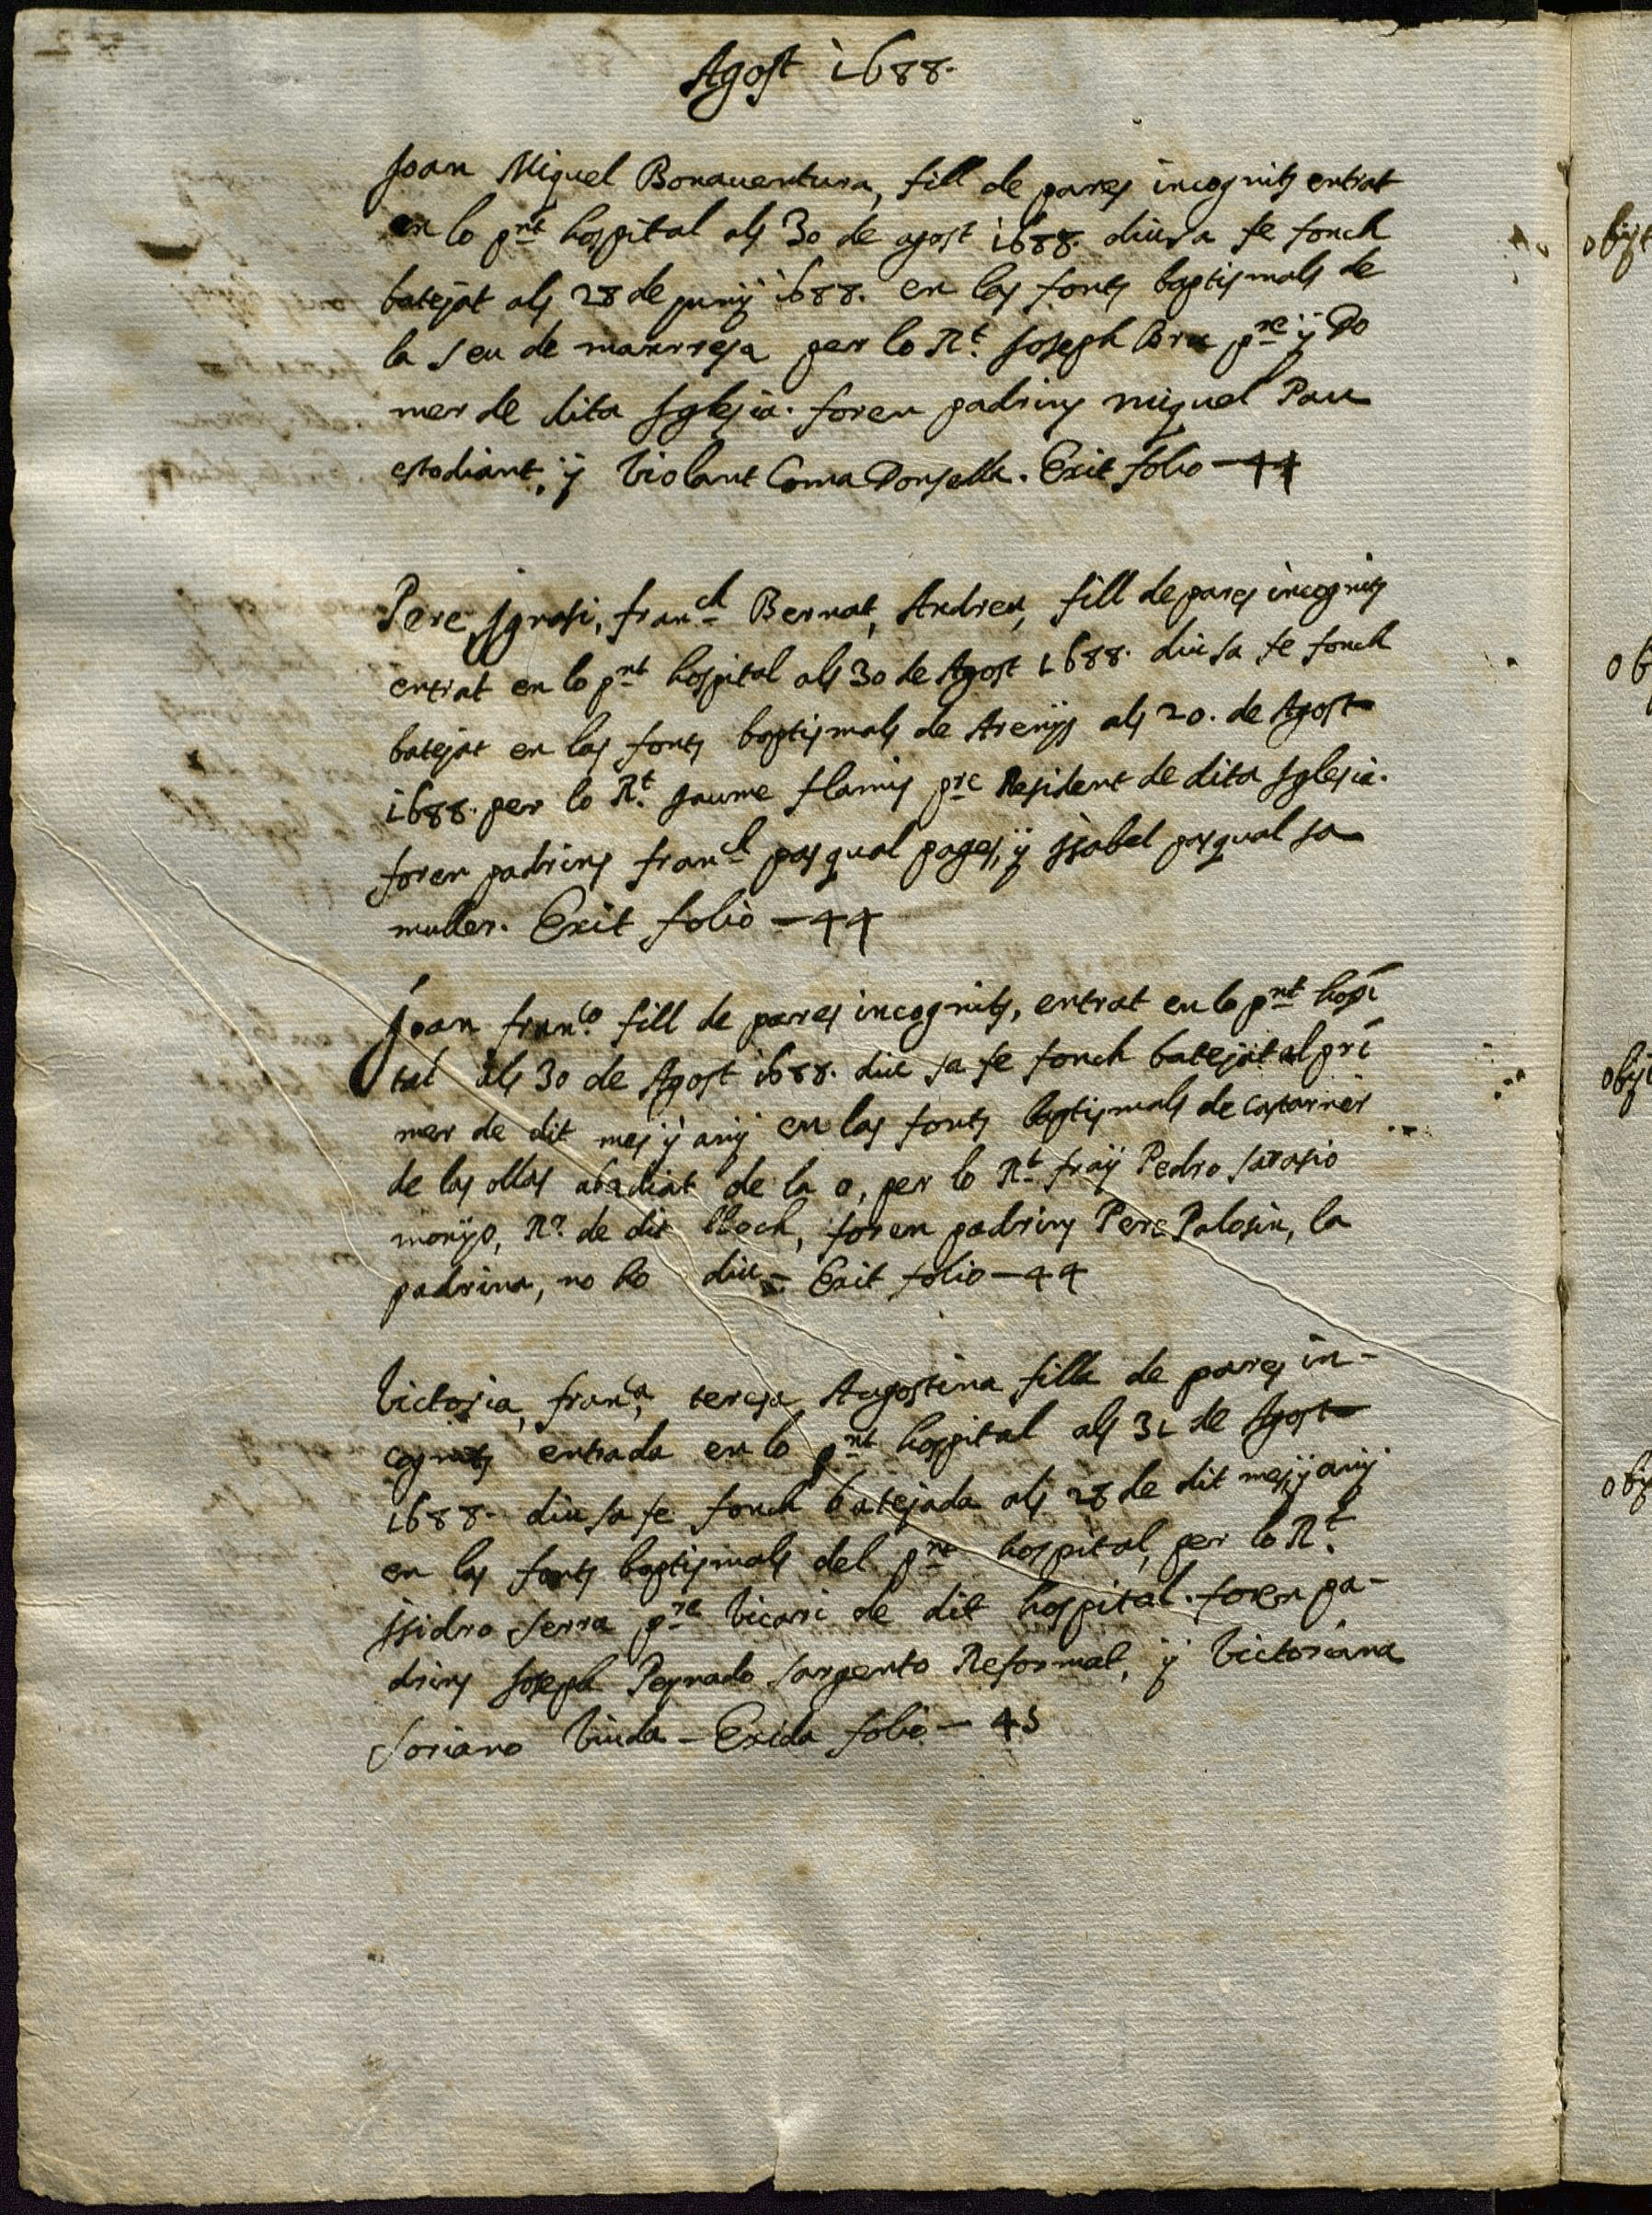 Agost 1688.
Joan Miquel Bonaventura, fill de pares incognits entrat
en lo pnt hospital als 30 de agost 1688. diu sa fe fonch
batejat als 28 de juny 1688. en las fonts baptismals de
la seu de manrresa per lo Rt. Joseph Bru pre y Do
mer de dita Iglesia. foren padrins miquel Pau
estodiant, y Violant Coma Donsella. Exit folio - 44
Pere, Ignasi, franch Bernat, Andreu, fill de pares incognits
entrat en lo pnt hospital als 30 de Agost 1688. diu sa fe fonch
batejat en las fonts baptismals de Arenys als 20. de Agost
1688. per lo Rt. Jaume flamis pre Resident de dita Iglesia.
foren padrins franch pasqual pages, y Isabel pasqual sa
muller. Exit folio - 44
Joan franco. fill de pares incognits, entrat en lo pnt hospi
tal als 30 de Agost 1688. diu sa fe fonch batejat al pri
mer de dit mes y any en las fonts baptismals de castarner
de las ollas abadiat de la o, per lo Rt. fray Pedro
Rr. de dit lloch, foren padrins Pere Palosin, la
padrina, no ho diu - Exit folio - 44
Victoria, franca, teresa Augostina filla de pares in-
cognits entrada en lo pnt hospital als 31 de Agost
1688. diu sa fe fonch batejada als 28 de dit mes y any
en las fonts baptismals del pnt hospital, per lo Rt.
Isidro Serra pre Vicari de dit hospital. foren pa-
drins Joseph Peynado sargento Reformat, y Victoriana
Soriano Viuda - Exida folio - 45
obijt
ob
obijt
obij